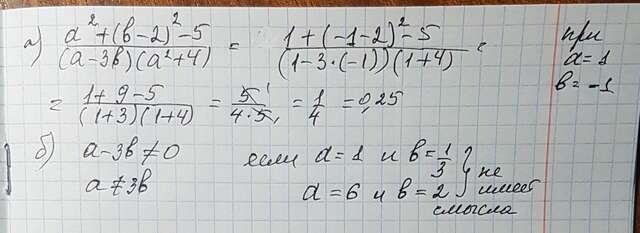 а) a²+(b-2)²-5 / (a-3b)(a²+4) = 1+(-1-2)²-5 / (1-3·(-1))(1+4) =
при
a=1
b=-1
= 1+9-5 / (1+3)(1+4) = 5 / 4·5 = 1/4 = 0,25
б) a-3b≠0 если a=1 и b=1/3
a≠3b a=6 и b=2 } не имеет смысла